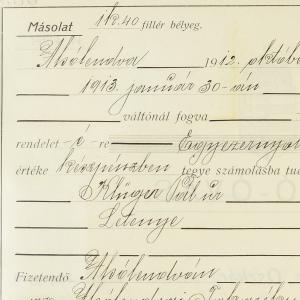 Másolat 1 k. 40 fillér bélyeg.
Alsólendva 1912. októbe
1913. január 30-án
váltónál fogva
rendelet -é- re Egyezernyol
értéke készpénzben tegye számolásba tud
Klüger Pál úr
Letenye
Fizetendő Alsólendván